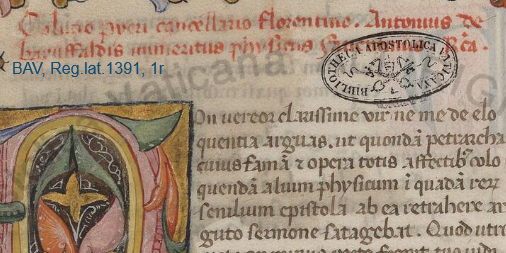 Colutio pyeri cancellario florentino. Antonius de
baruffaldis inmeritus physicus
BIBLIOTHECA APOSTOLICA VATICANA
BAV, Reg.lat.1391, 1r
On uereor clarissime uir ne me de elo
quentia arguas. ut quondā petrarcha
cuius famā ⁊ opera totis affectibꝰ colo
quendā alium physicum ī quadā rerꝝ
senilium epistola ab ea retrahere ar
guto sermone satagebat. Quod utrū